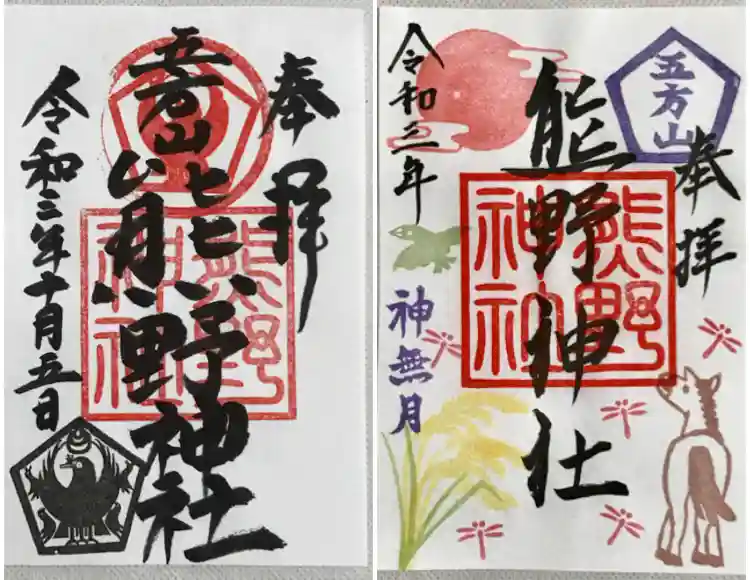 奉拝
五方山
熊野神社
熊野神社
令和三年十月五日
五方山
奉拝
熊野神社
熊野神社
令和三年
神無月